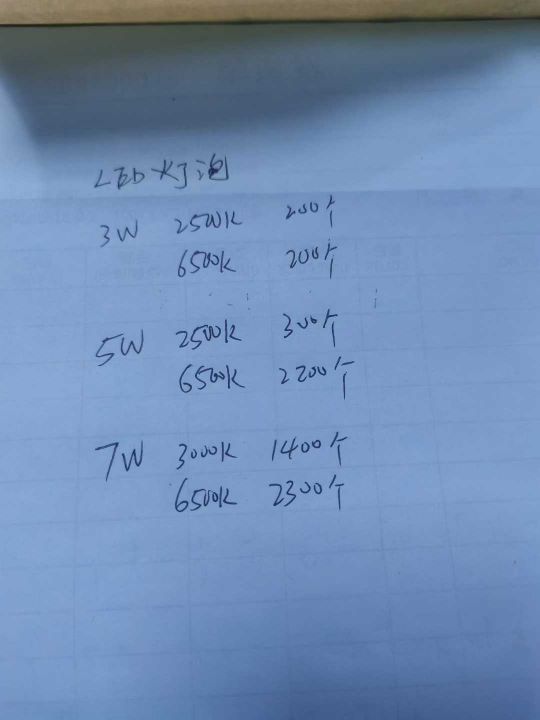 LED灯泡
3W 2500K 200个
6500K 200个
5W 2500K 300个
6500K 2200个
7W 3000K 1400个
6500K 2300个